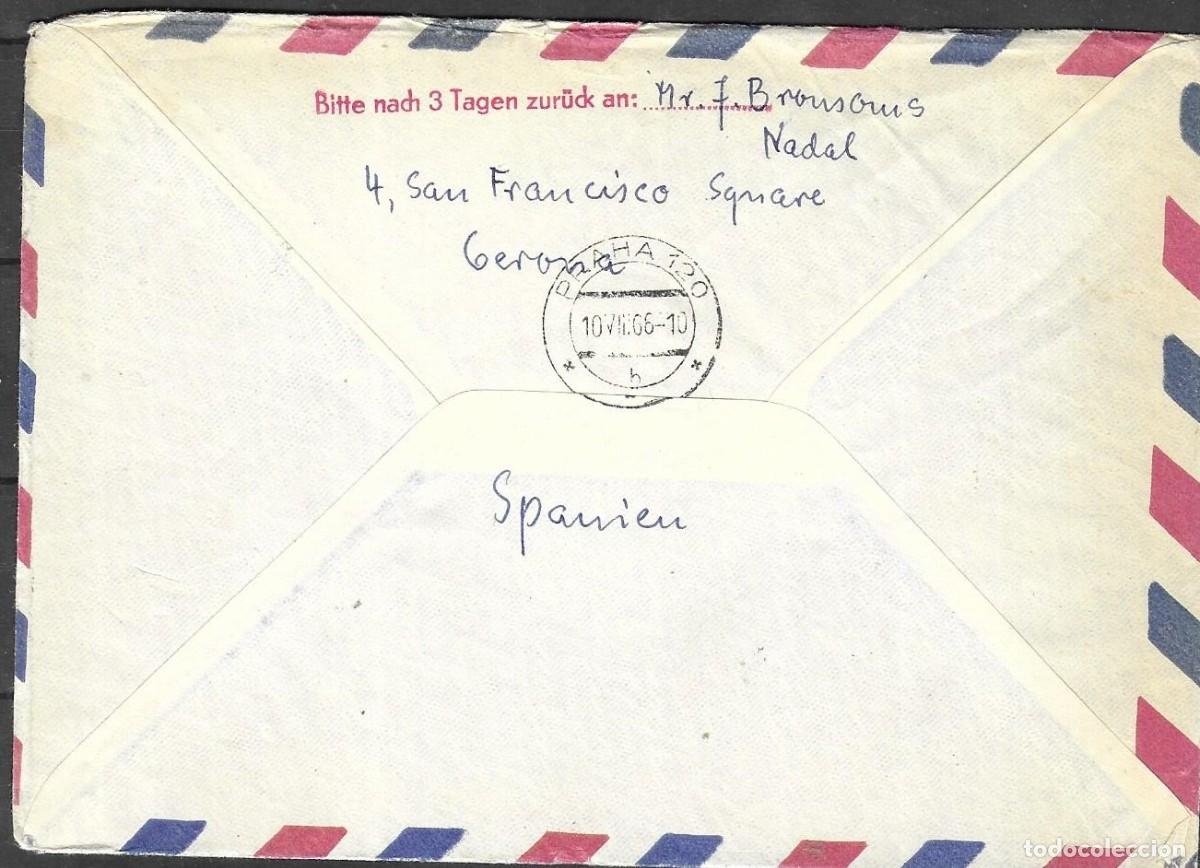 Bitte nach 3 Tagen zurück an: Mr. J. Bronsoms
Nadal
4, San Francisco Square
Gerona
PRAHA 120
10 VII. 66-10
b
Spanien
todocoleccion